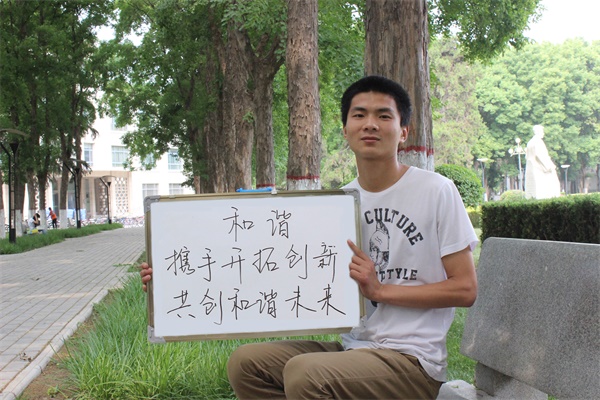 和谐
携手开拓创新
共创和谐未来
CULTURE
STYLE